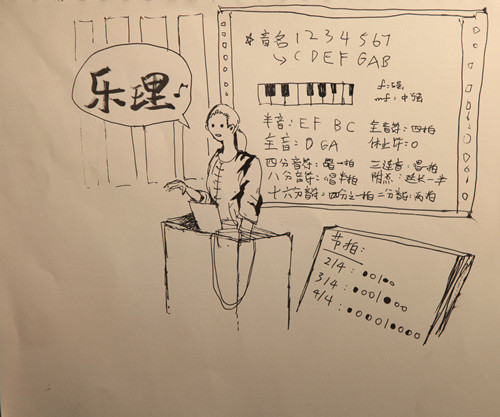 乐理
音名 1 2 3 4 5 6 7
C D E F G A B
f:强
mf:中强
半音:EF BC 全音符:四拍
主音:D G A 休止符=0
四分音符:唱一拍 三连音:唱一拍
八分音符:唱半拍 附点:延长一半
十六分音符:四分之一拍 二分音符:两拍
节拍:
2/4:●○/●○
3/4:●○○/●○○
4/4:●○◐○/●○◐○